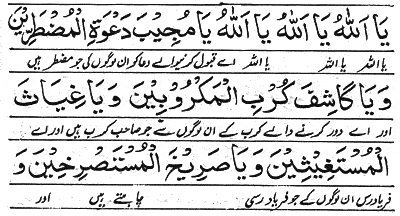 يَا اَللّٰهُ يَا اَللّٰهُ يَا اَللّٰهُ يَا مُجِيْبَ دَعْوَةِ الْمُضْطَرِّيْنَ
یا اللہ یا اللہ یا اللہ اے قبول کرنیوالے دعا کو ان لوگوں کی جو مضطر ہیں
وَيَا كَاشِفَ كُرَبِ الْمَكْرُوْبِيْنَ وَيَا غِيَاثَ
اور اے دور کرنے والے کرب کے ان لوگوں سے جو صاحب کرب ہیں اور اے
الْمُسْتَغِيْثِيْنَ وَيَا صَرِيْخَ الْمُسْتَصْرِخِيْنَ وَ
فریاد رس ان لوگوں کے جو فریاد رسی چاہتے ہیں اور